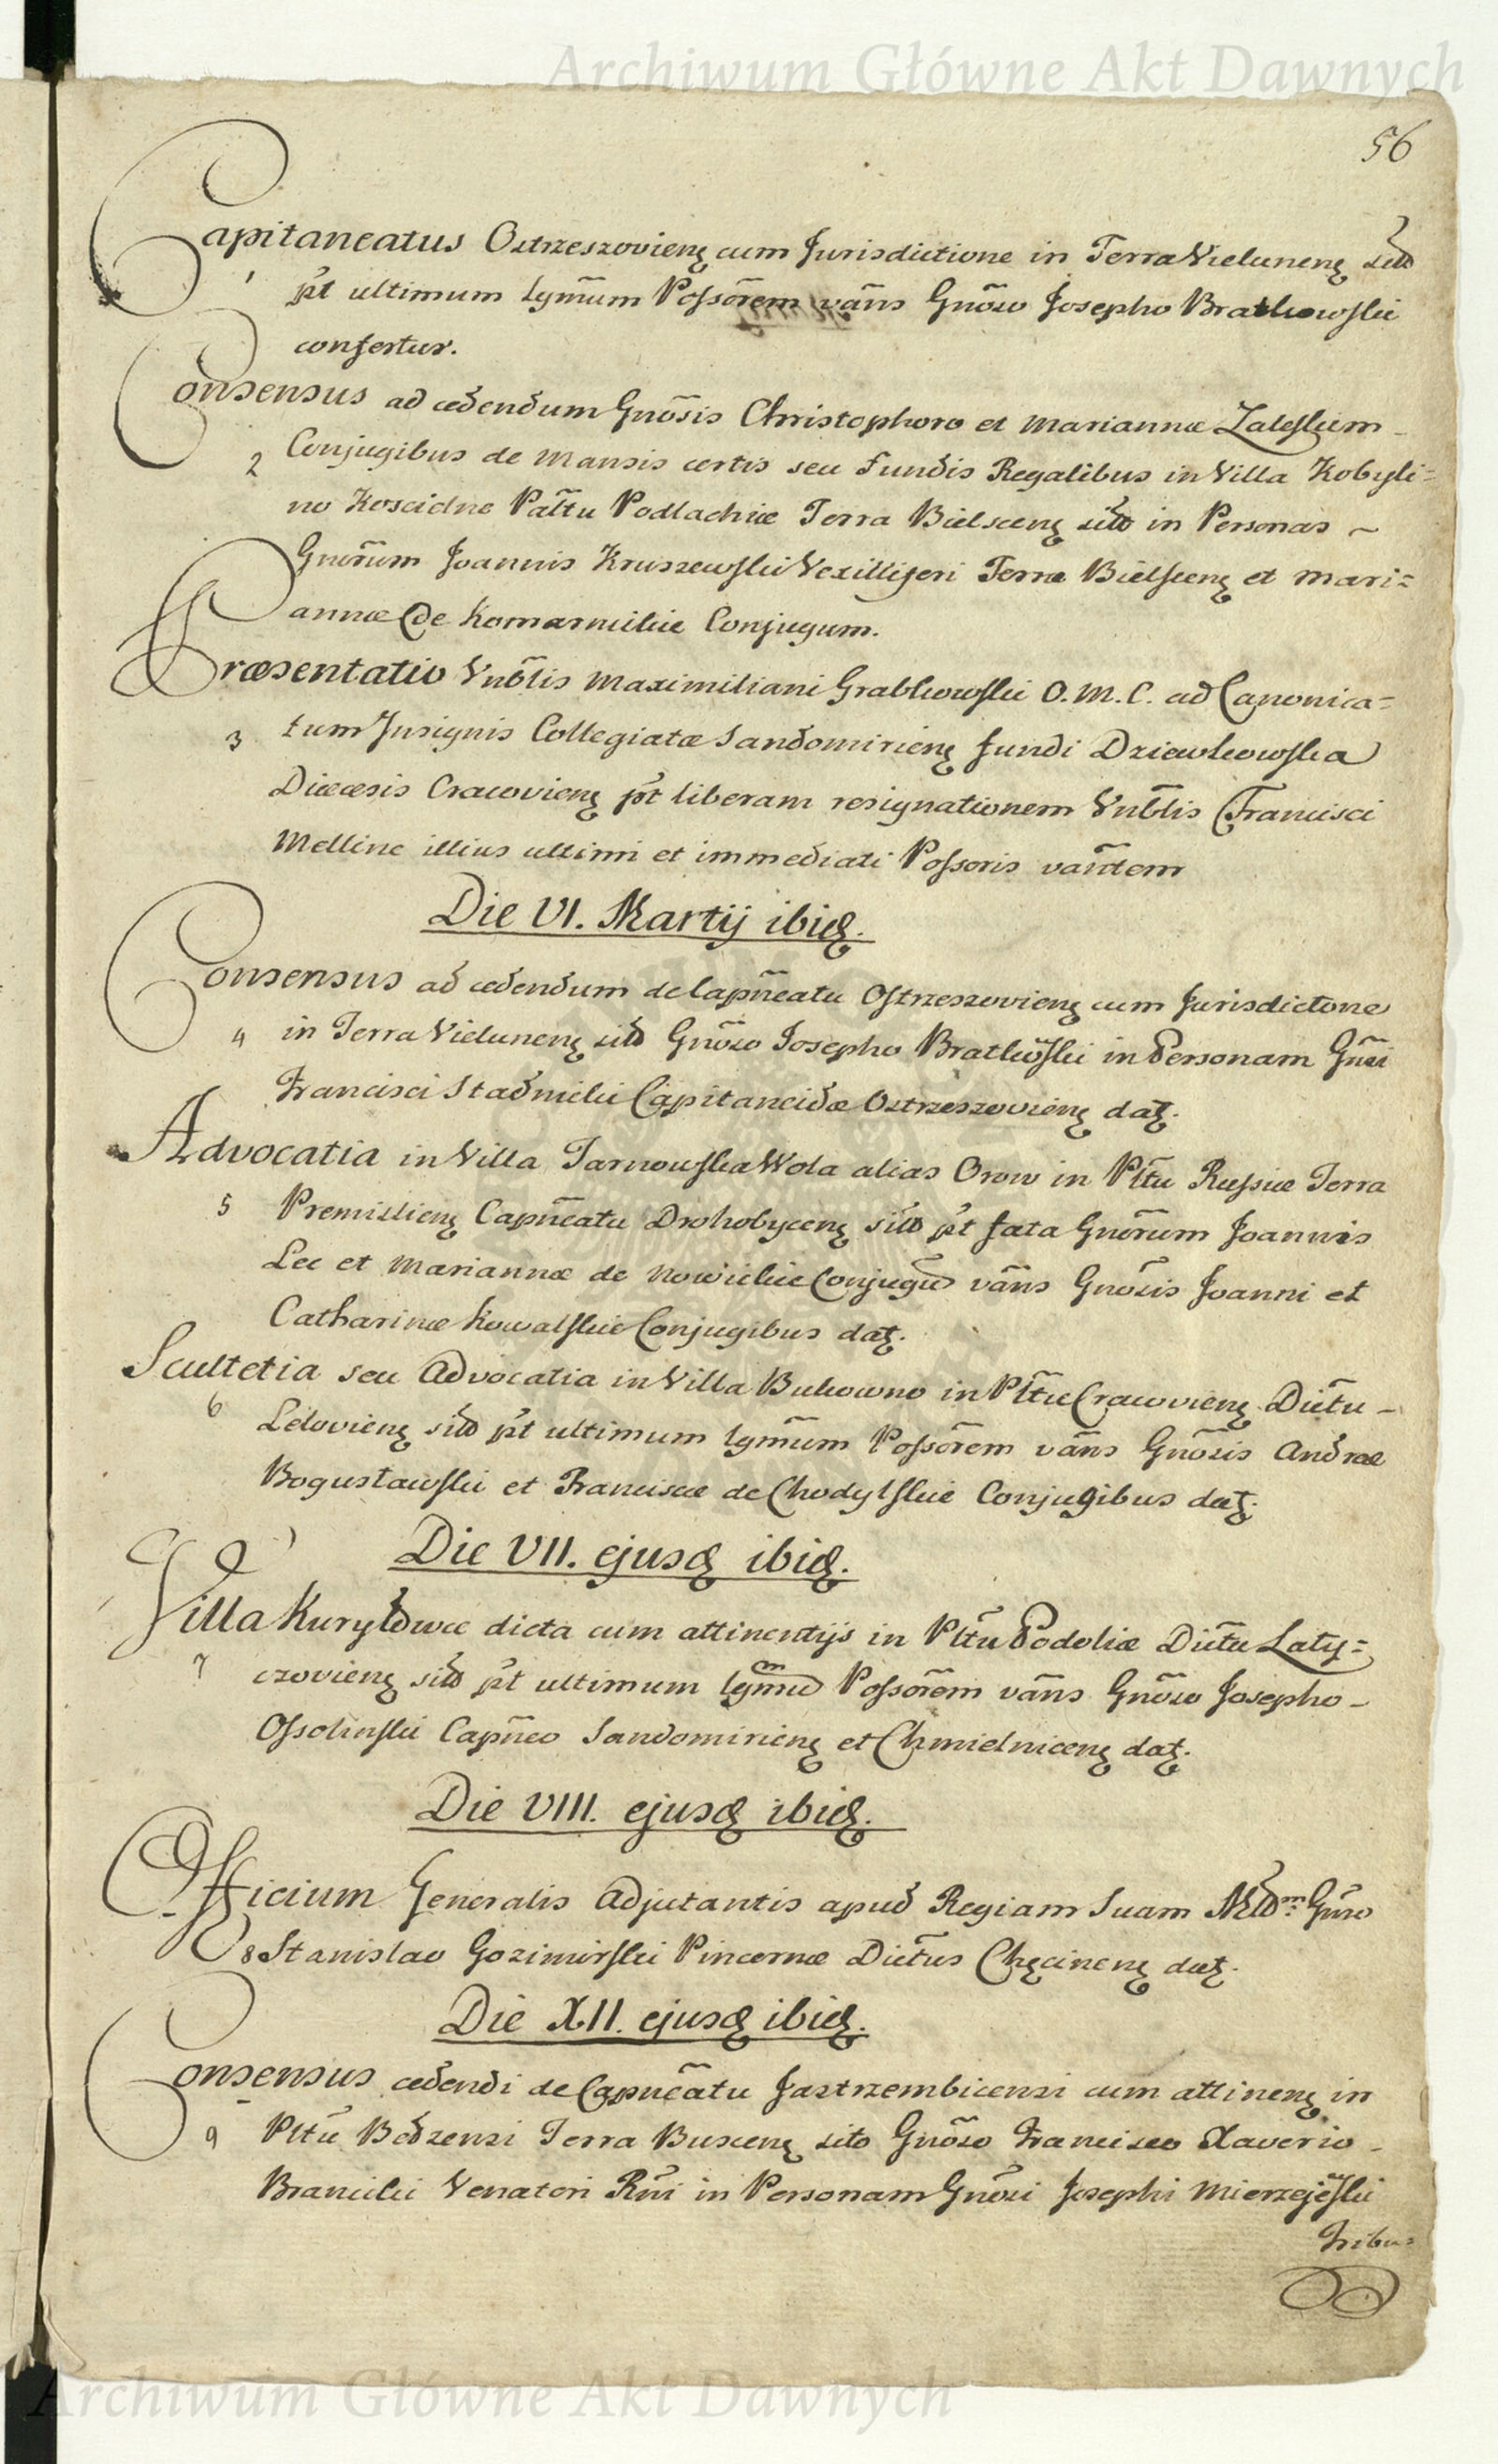 Archiwum Główne Akt Dawnych
56
Capitaneatus Ostrzeszovieng cum Jurisdictione in Terra Vieluneng
1 pt ultimum lgmum Possorem vans Gnoso Josepho Bratkowski
confertur.
Consensus ad cedendum Gnosis Christophoro et Mariannæ Zaleskim
2 Conjugibus de Mansis certis seu Fundis Regalibus in Villa Kobyli=
no Koscidne Paltu Podlachiæ Terra Bielsceng sito in Personas ~
Gnorum Joannis Kruszewski Vexilliferi Terræ Bielsceng et Mari=
annæ de Komarnickie Conjugum.
Præsentatio Vnblis Maximiliani Grabkowski O. M. C. ad Canonica=
3 tum Insignis Collegiatæ Sandomirieng fundi Dziewkowska
Diæcesis Cracovieng pt liberam resignationem Vnblis Francisci
Melline illius ultimi et immediati Possoris vantem
Die VI. Martij ibid.
Consensus ad cedendum de Capneatu Ostrzeszovieng cum Jurisdictone
4 in Terra Vieluneng sito Gnoso Josepho Bratkoski in Personam Gnsi
Francisci Stadnicki Capitaneidæ Ostrzeszovieng dat.
Advocatia in Villa Tarnowska Wola alias Orow in Pltu Russiæ Terra
5 Premislieng Capneatu Drohobyceng sito pt fata Gnorum Joannis
Lec et Mariannæ de Nowickie Conjugu vans Gnosis Joanni et
Catharinæ Kowalskie Conjugibus dat.
Scultetia seu Advocatia in Villa Bukowno in Pltu Cracovieng Dictu -
6 Lelovieng sito pt ultimum lgmum Possorem vans Gnosis Andræ
Bogusławski et Franciscæ de Chodylskie Conjugibus dat.
Die VII. ejusd ibid.
Villa Kuryłowce dicta cum attinentijs in Pltu Podoliæ Dictu Laty=
7 czovieng sito pt ultimum lgmum Possorem vans Gnoso Josepho -
Ossolinski Capneo Sandomirieng et Chmielniceng dat.
Die VIII. ejusd ibid.
Officium Generalis Adjutantis apud Regiam Suam Gnso
8 Stanislao Gozimirski Pincernæ Dictus Chęcineng dat.
Die XII. ejusd ibid.
Consensus cedendi de Capneatu Jastrzembicensi cum attineng in
9 Pltu Bedzensi Terra Busceng sito Gnoso Francisco Xaverio -
Branicki Venatori Rni in Personam Gnosi Josephi Mierzejeski
Tribu=
Archiwum Główne Akt Dawnych